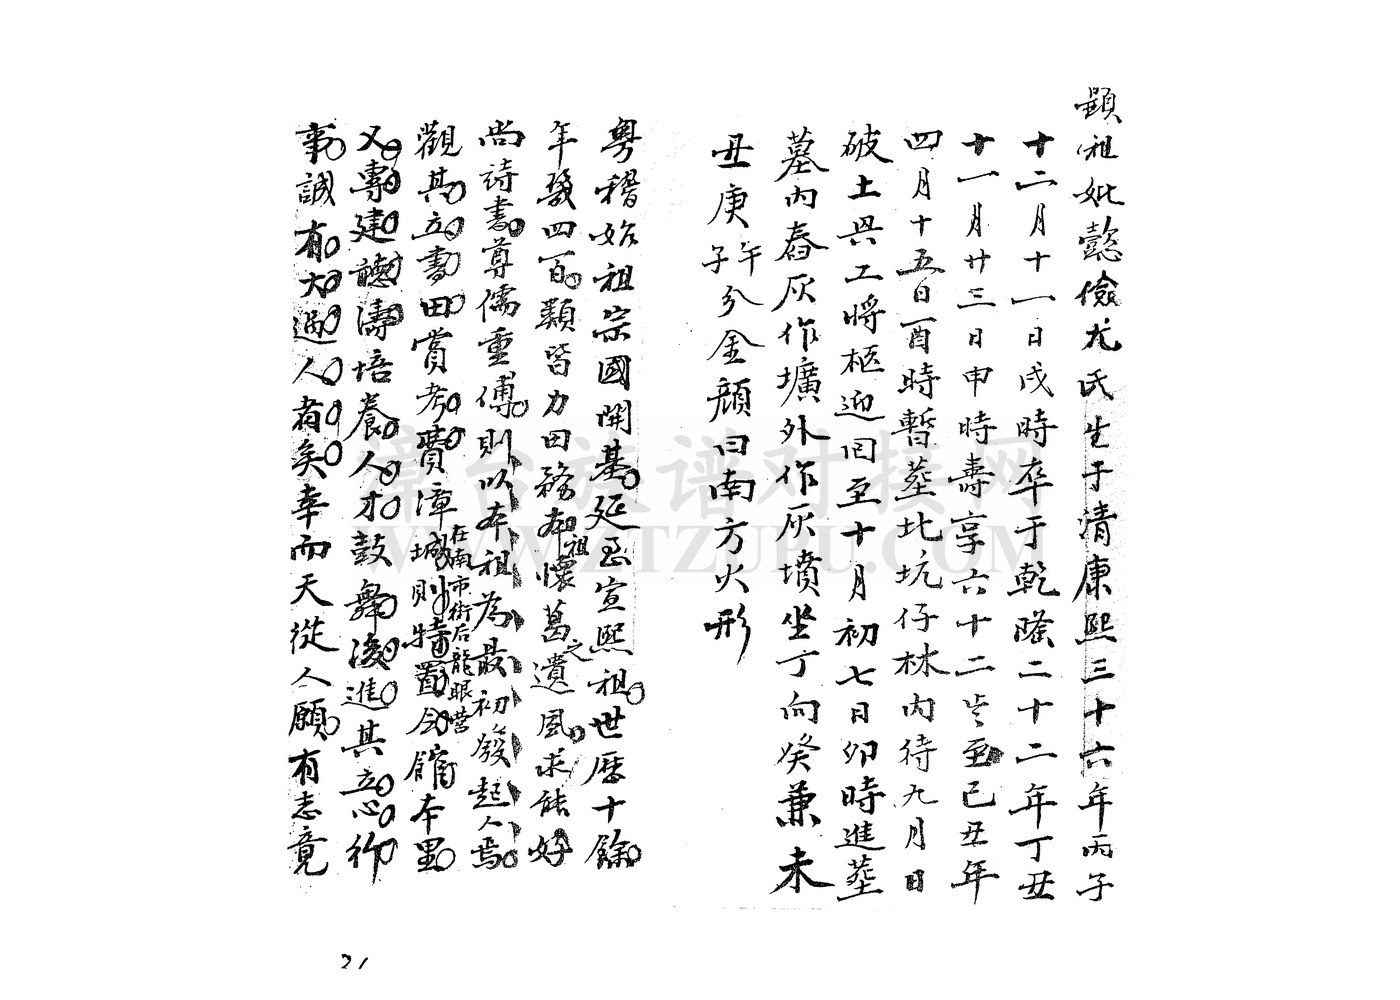 顕祖妣懿儉尤氏生于清康熙三十六年丙子
十二月十一日戌時卒于乾隆二十二年丁丑
十一月廿三日申時壽享六十二歲至己丑年
四月十五日酉時暫塟北坑仔林內待九月日
破土興工將柩迎回至十月初七日卯時進塟
墓內舂灰作壙外作灰墳坐丁向癸兼未
丑庚午子分金顔曰南方火形
粵稽始祖宗國開基延至宣熙祖世歷十餘
年幾四百類皆力田務本祖懷葛之遺風求能好
尚詩書尊儒重傅則以本祖為最初發起人焉
觀其立書田賞考費漳城則特置會館本里
在南市街后龍眼營
又專建聽濤培養人才鼓舞後進其立心行
事誠有大過人者矣幸而天從人願有志竟
21
庸台族谱对接网
WWW.ZTZUPU.COM